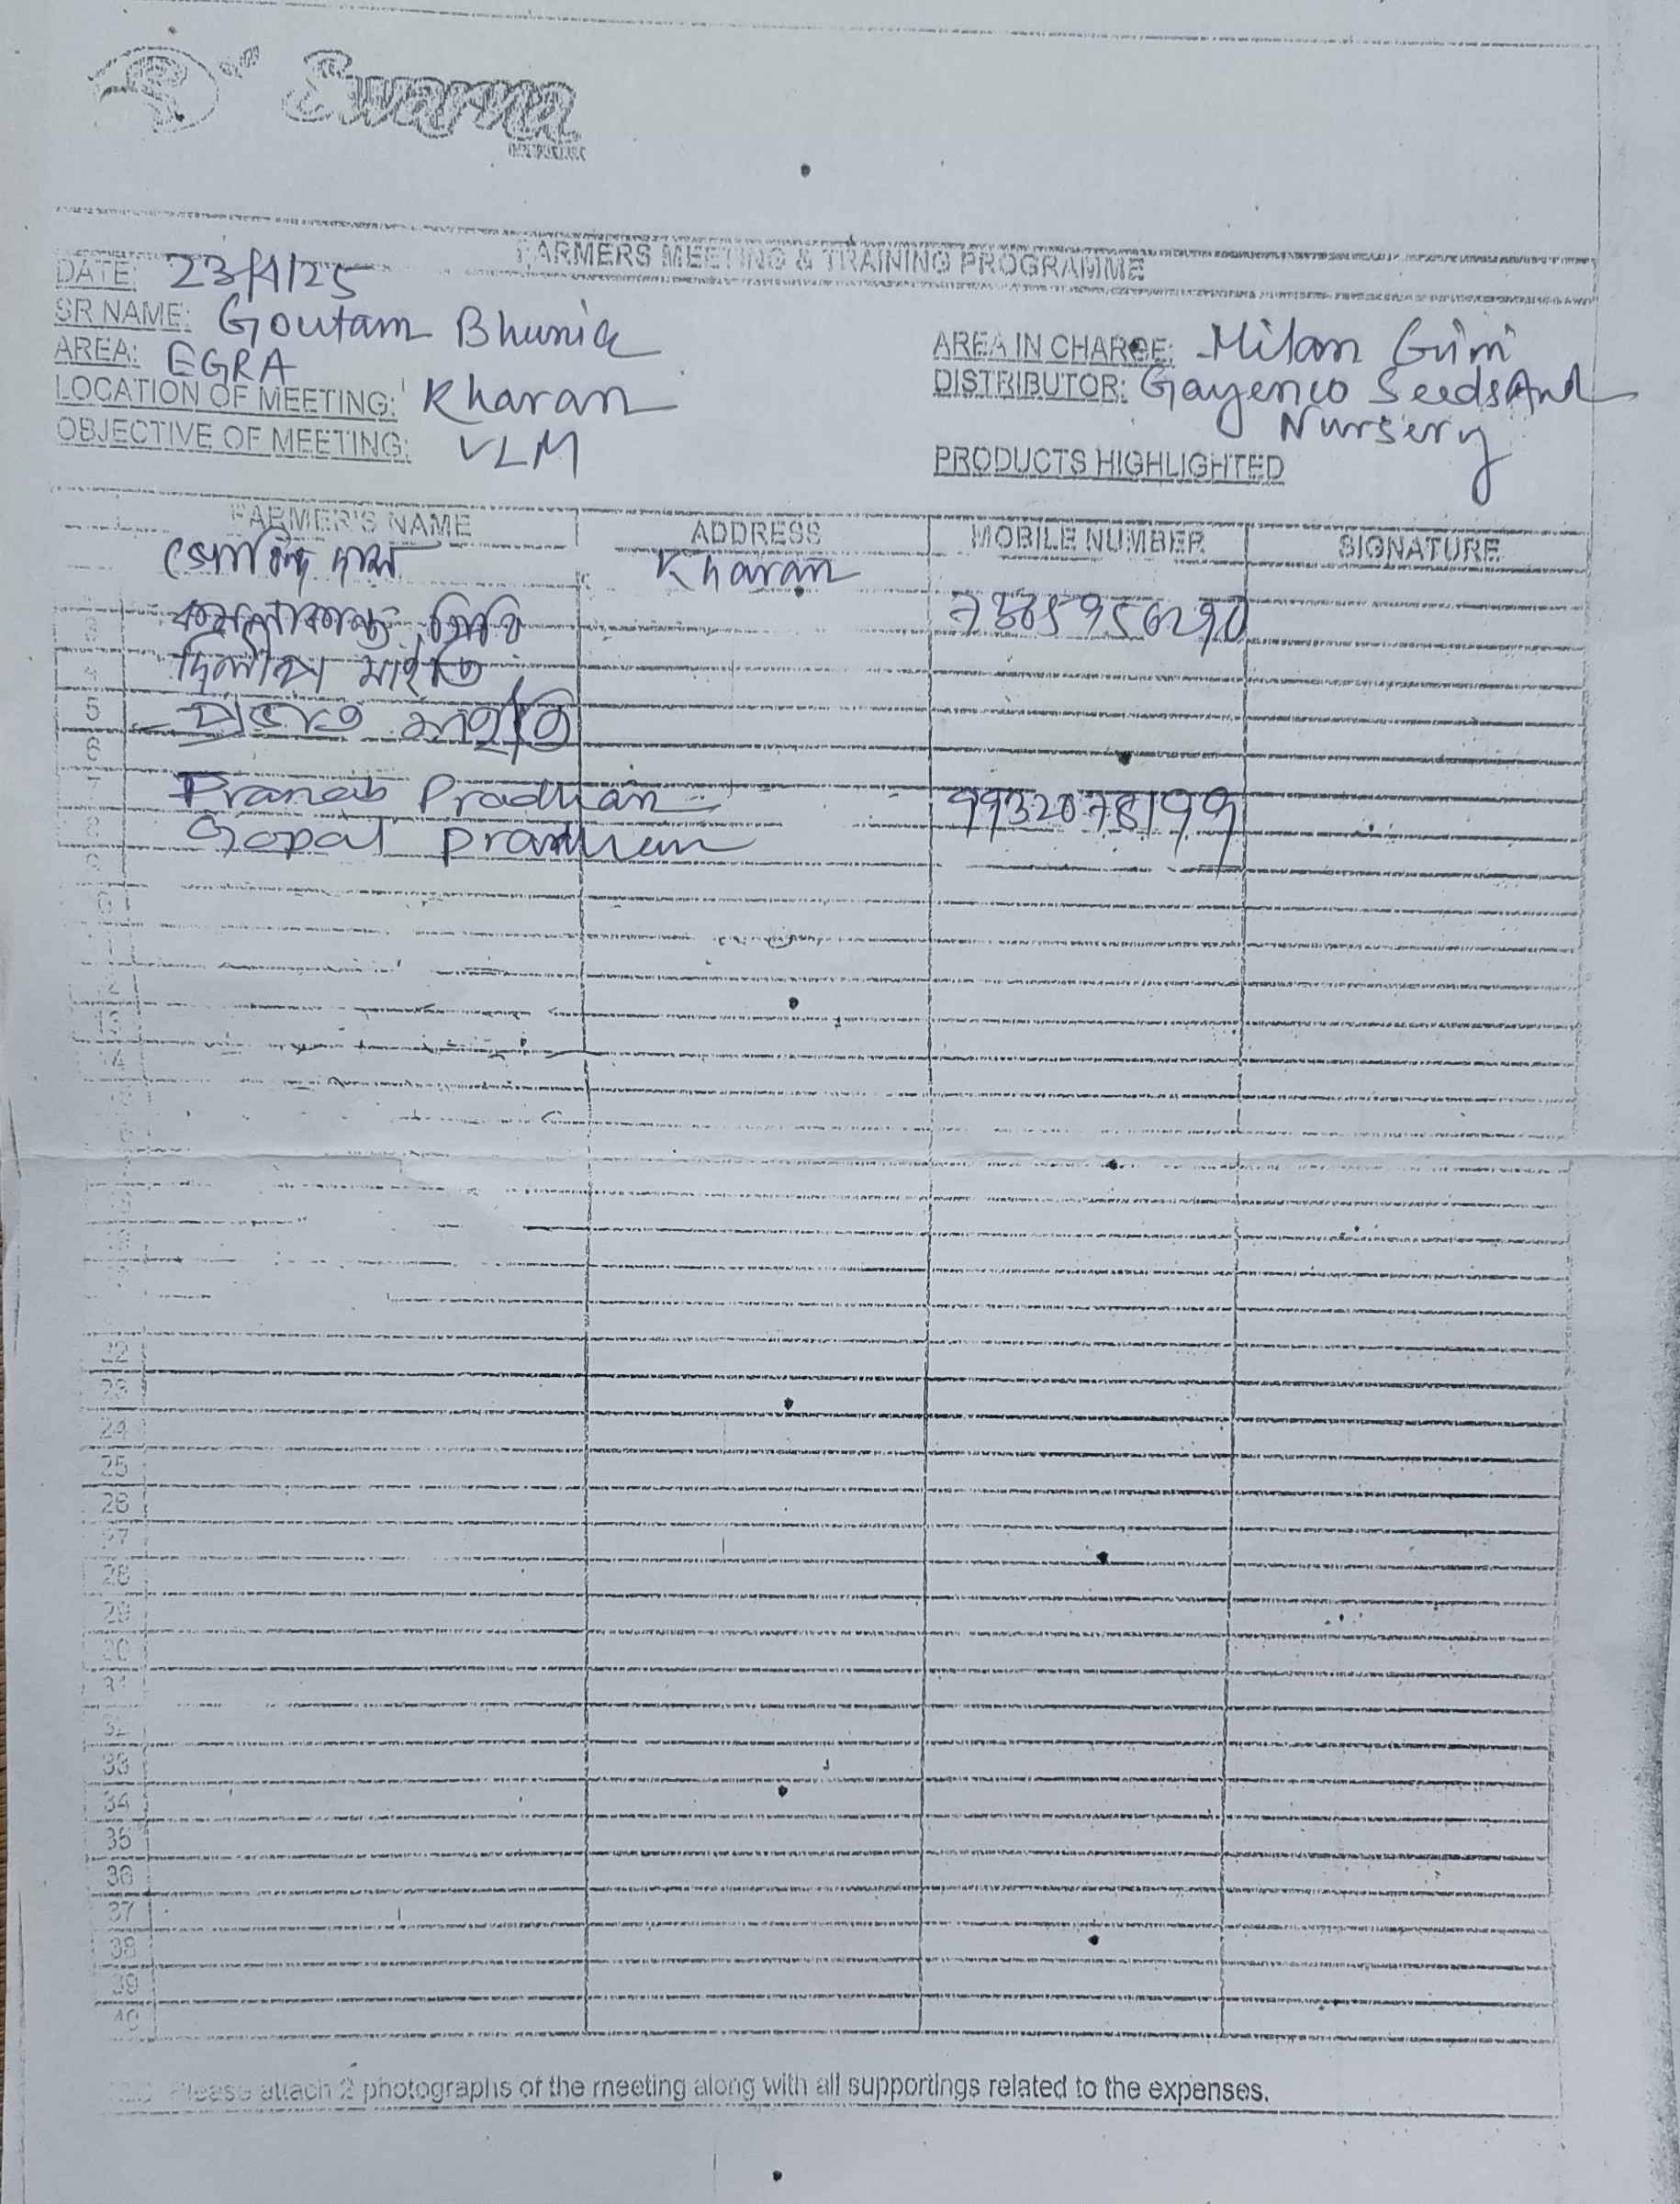 Swarna
FARMERS MEETING & TRAINING PROGRAMME
DATE: 23/4/25
SR NAME: Goutam Bhunia
AREA: EGRA
LOCATION OF MEETING: Kharan
OBJECTIVE OF MEETING: VLM
AREA IN CHARGE: Milan Giri
DISTRIBUTOR: Gayenco Seeds And
Nursery
PRODUCTS HIGHLIGHTED
FARMER'S NAME ADDRESS MOBILE NUMBER SIGNATURE
গোবিন্দ দাস Kharan
3
4 দিলীপ মাইতি
5 প্রভাত মাইতি
6
7 Pranab Pradhan 9932078199
8 Gopal Pradhan
9
13
14
22
23
24
25
26
27
28
29
30
31
32
33
34
35
36
37
38
39
40
Please attach 2 photographs of the meeting along with all supportings related to the expenses.